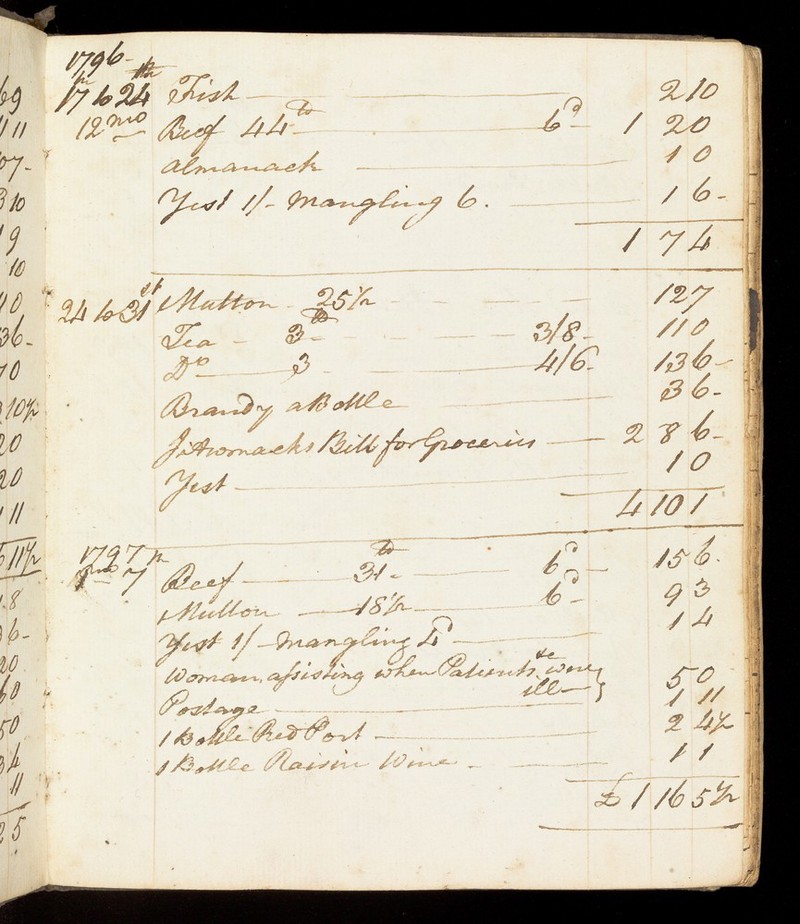 1796-
17th to 24th Fish 2 10
12mo Beef 44lb 6d 1 2 0
almanack 1 0
Yest 1/- Mangling 6. 1 6-
1 7 4
24 to 31st Mutton 25 1/2 12 7
Tea 3lb 3/8- 11 0
Do 3 4/6- 13 6-
Brandy a Bottle 3 6-
Bill for Groceries 2 8 6-
Yest 1 0
4 10 1
1797
1mo 7th Beef 31lb 6d 15 6.
Mutton 18 1/2 6d 9 3
Yest 1/- Mangling 4d 1 4
Woman assisting when Patients &c were
ill 5 0
Postage 1 11
1 Bottle Red Port 2 4 1/2
1 Bottle Raisin Wine 1 1
£ 1 16 5 1/2
69
11 11
07-
3 10
9
10
10
36-
70
10 1/2
20
20
11
11 1/2
1.8
6-
20
60
50
34
11
2 5